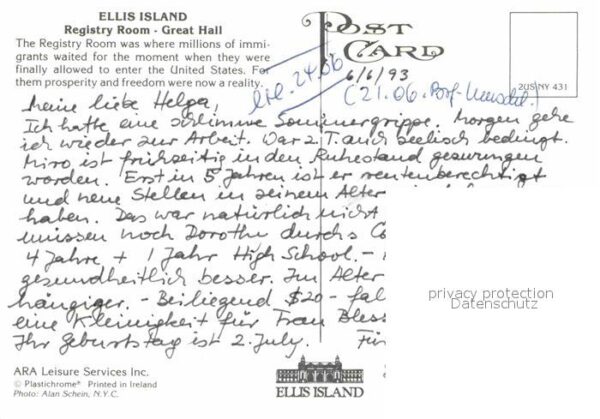 ELLIS ISLAND
Registry Room - Great Hall
The Registry Room was where millions of immi-
grants waited for the moment when they were
finally allowed to enter the United States. For
them prosperity and freedom were now a reality.
POST
CARD
6/6/93
erl. 24.06
(21.06.
2US NY 431
Meine liebe Helga,
Ich hatte eine schlimme Sommergrippe. Morgen gehe
ich wieder zur Arbeit. War z. T. auch seelisch bedingt.
Miro ist frühzeitig in den Ruhestand gezwungen
worden. Erst in 5 Jahren ist er rentenberechtigt
und neue Stellen in seinem Alter
haben. Das war natürlich nicht
müssen noch Dorothy durchs Co
4 Jahre + 1 Jahr High School. -
gesundheitlich besser. Im Alter
hängiger. - Beiliegend $20 - fal
eine Kleinigkeit für Frau Bless
Ihr Geburtstag ist 2. July. Für
privacy protection
Datenschutz
ARA Leisure Services Inc.
© Plastichrome® Printed in Ireland
Photo: Alan Schein, N.Y.C.
ELLIS ISLAND